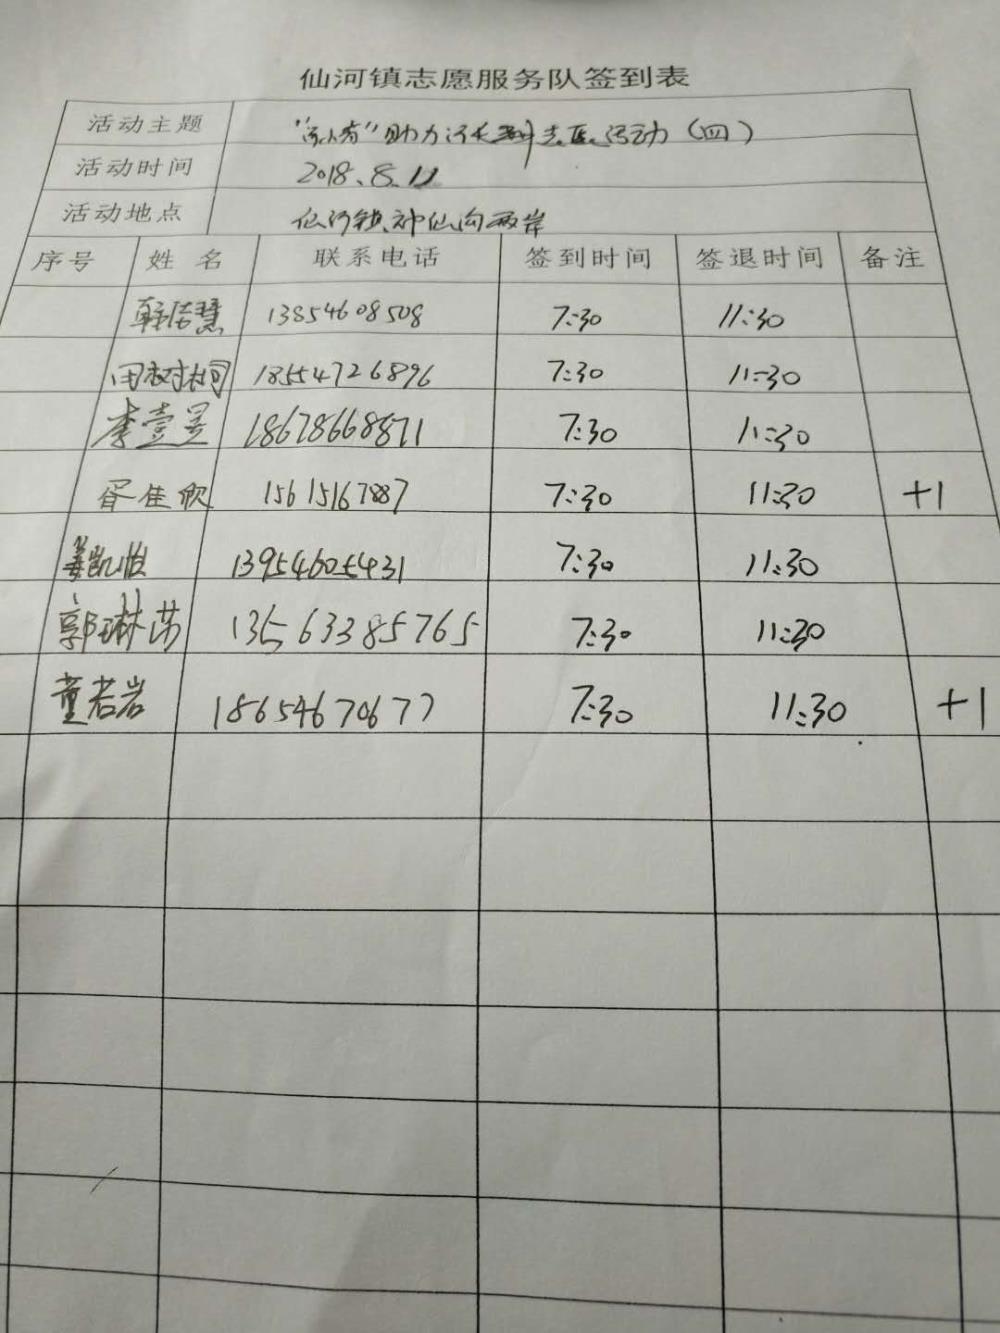 仙河镇志愿服务队签到表
活动主题 "河小青"助力河长制志愿活动（四）
活动时间 2018.8.11
活动地点 仙河镇神仙沟两岸
序号 姓名 联系电话 签到时间 签退时间 备注
韩洁慧 13854608508 7:30 11:30
田树楠 18554726896 7:30 11:30
李壹昊 18678668871 7:30 11:30
胥佳欣 15615167887 7:30 11:30 +1
姜凯怡 13954605431 7:30 11:30
郭琳莎 13563385765 7:30 11:30
董若岩 18654670677 7:30 11:30 +1